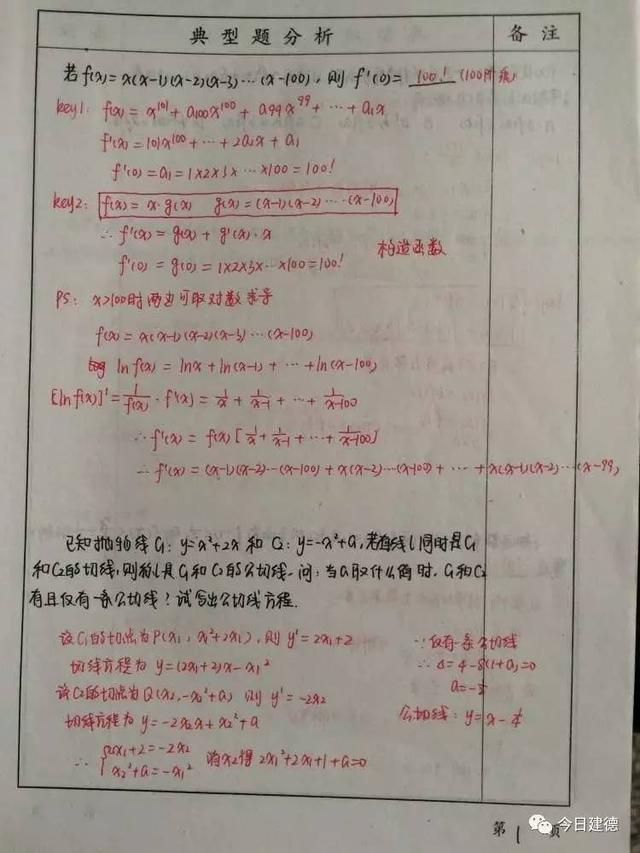 典型题分析 备注
若f(x)=x(x-1)(x-2)(x-3)…(x-100), 则 f'(0)= 100! (100阶乘)
key1: f(x)=x¹⁰¹+a₁₀₀x¹⁰⁰+a₉₉x⁹⁹+…+a₁x
f'(x)=101x¹⁰⁰+…+2a₂x+a₁
f'(0)=a₁=1×2×3×…×100=100!
key2: f(x)=x·g(x) g(x)=(x-1)(x-2)…(x-100)
∴ f'(x)=g(x)+g'(x)·x
f'(0)=g(0)=1×2×3×…×100=100! 构造函数
PS: x>100时两边可取对数求导
f(x)=x(x-1)(x-2)(x-3)…(x-100)
lnf(x)=lnx+ln(x-1)+…+ln(x-100)
[lnf(x)]'=1/f(x)·f'(x)=1/x+1/(x-1)+…+1/(x-100)
∴f'(x)=f(x)[1/x+1/(x-1)+…+1/(x-100)]
∴f'(x)=(x-1)(x-2)…(x-100)+x(x-2)…(x-100)+…+x(x-1)(x-2)…(x-99)
已知抛物线C₁: y=x²+2x 和 C₂: y=-x²+a, 若直线l同时是C₁
和C₂的切线, 则称l是C₁和C₂的公切线. 问: 当a取什么值时, C₁和C₂
有且仅有一条公切线? 试写出公切线方程.
设C₁的切点为P(x₁, x₁²+2x₁), 则 y'=2x₁+2
切线方程为 y=(2x₁+2)x-x₁²
设C₂的切点为Q(x₂,-x₂²+a) 则 y'=-2x₂
切线方程为 y=-2x₂x+x₂²+a
∴ {2x₁+2=-2x₂
x₂²+a=-x₁² 消x₂得 2x₁²+2x₁+1+a=0
∵仅有一条公切线
∴Δ=4-8(1+a)=0
a=-½
公切线: y=x-¼
第 1 页
今日建德